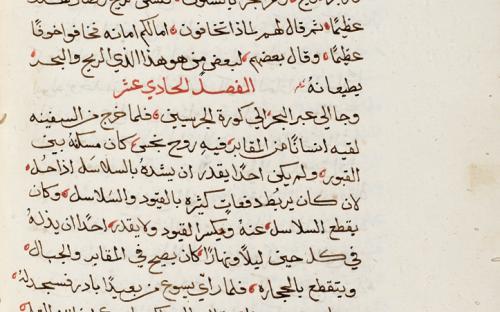 عظيمًا ثم قال لهم لماذا تخافون امالكم امانه فخافوا خوفًا
عظيمًا وقال بعضهم لبعض من هو هذا الذي الريح والبحر
يطيعانه الفصل الحادي عشر
وجا الي عبر البحر الي كورة الجرسيين فلما خرج من السفينه
لقيه انسانًا من المقابر فيه روح نجس كان مسكنه بين
القبور ولم يكن احدًا يقدر ان يشده بالسلاسل اذا حل
لان كان يربط دفعات كثيره بالقيود والسلاسل وكان
يقطع السلاسل عنه ويكسر القيود ولا يقدر احدًا ان يذله
في كل حين ليلًا ونهارًا كان يصيح في المقابر والجبال
ويتقطع بالحجاره فلما راي يسوع من بعيدًا بادر فسجد له